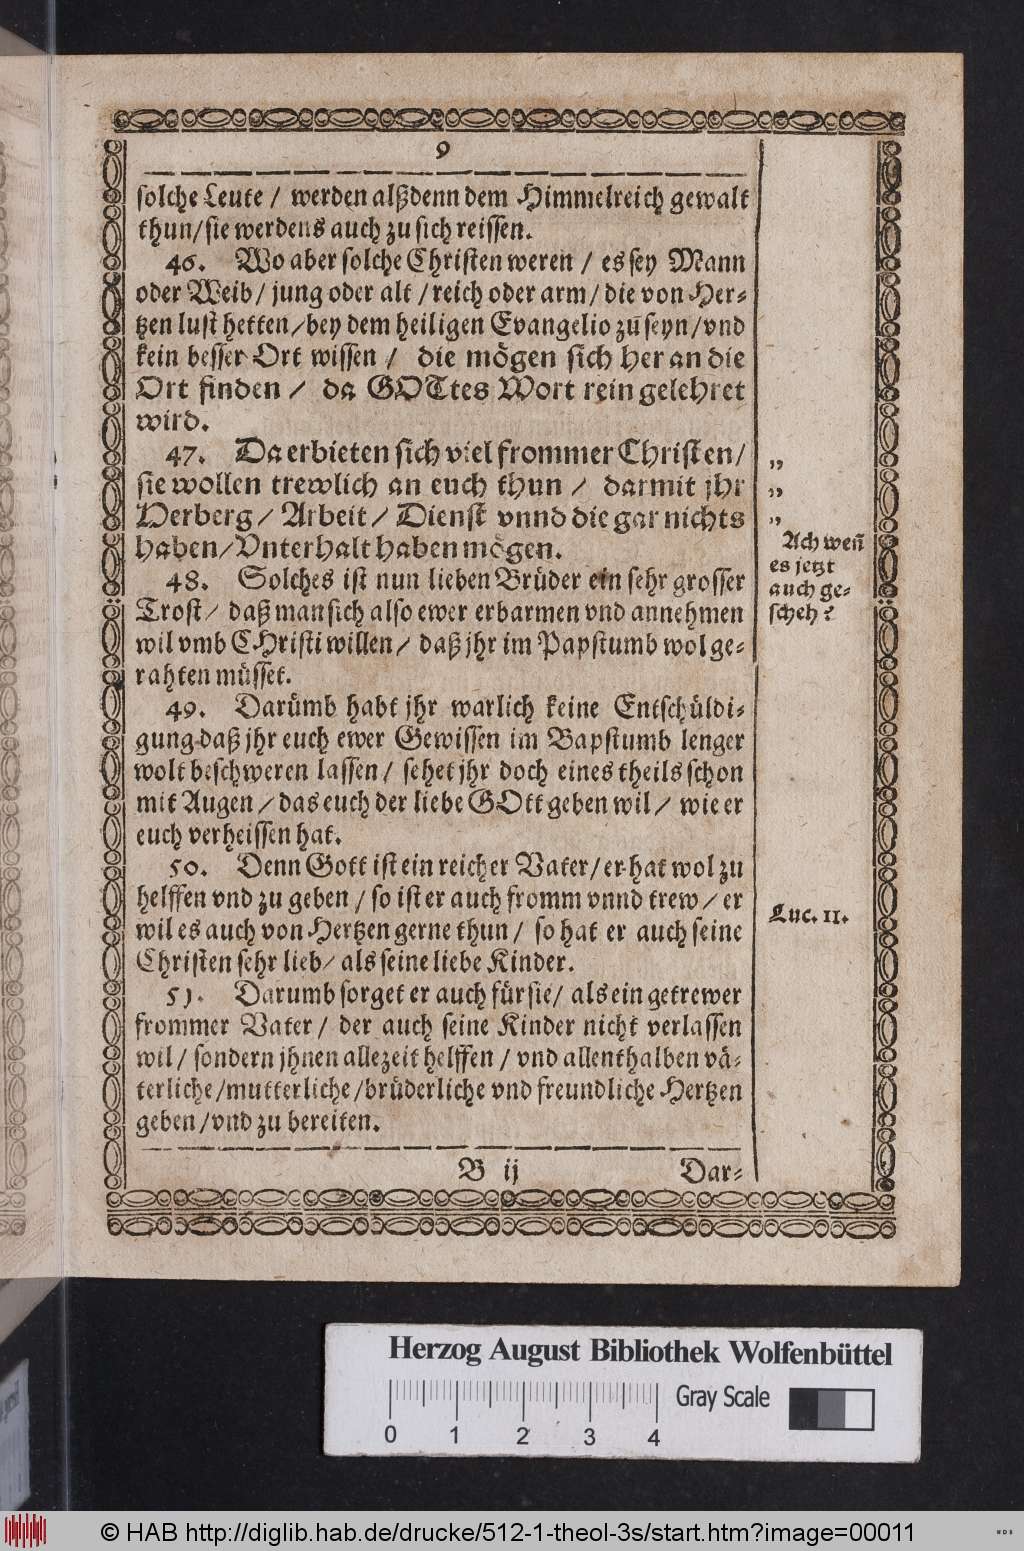 9
solche Leute / werden alßdenn dem Himmelreich gewalt
thun/sie werdens auch zu sich reissen.
46. Wo aber solche Christen weren / es sey Mann
oder Weib/ jung oder alt / reich oder arm/ die von Her-
tzen lust hetten/bey dem heiligen Evangelio zu seyn/vnd
kein besser Ort wissen / die mögen sich her an die
Ort finden / da GOTtes Wort rein gelehret
wird.
47. Da erbieten sich viel frommer Christen/
sie wollen trewlich an euch thun / darmit jhr
Herberg/ Arbeit/ Dienst vnnd die gar nichts
haben/Vnterhalt haben mögen.
„
„
„
Ach weñ
es jetzt
auch ge-
scheh?
48. Solches ist nun lieben Brüder ein sehr grosser
Trost/ daß man sich also ewer erbarmen vnd annehmen
wil vmb CHristi willen/ daß jhr im Papstumb wol ge-
rahten müsset.
49. Darümb habt jhr warlich keine Entschüldi-
gung daß jhr euch ewer Gewissen im Bapstumb lenger
wolt beschweren lassen/ sehet jhr doch eines theils schon
mit Augen/das euch der liebe GOtt geben wil/ wie er
euch verheissen hat.
50. Denn Gott ist ein reicher Vater/er hat wol zu
helffen vnd zu geben / so ist er auch fromm vnnd trew/ er
wil es auch von Hertzen gerne thun/ so hat er auch seine
Christen sehr lieb/ als seine liebe Kinder.
Luc. 11.
51. Darumb sorget er auch für sie/ als ein getrewer
frommer Vater/ der auch seine Kinder nicht verlassen
wil/ sondern jhnen allezeit helffen / vnd allenthalben vä-
terliche/mutterliche/brüderliche vnd freundliche Hertzen
geben/vnd zu bereiten.
B ij Dar-
Herzog August Bibliothek Wolfenbüttel
0 1 2 3 4
Gray Scale
© HAB http://diglib.hab.de/drucke/512-1-theol-3s/start.htm?image=00011